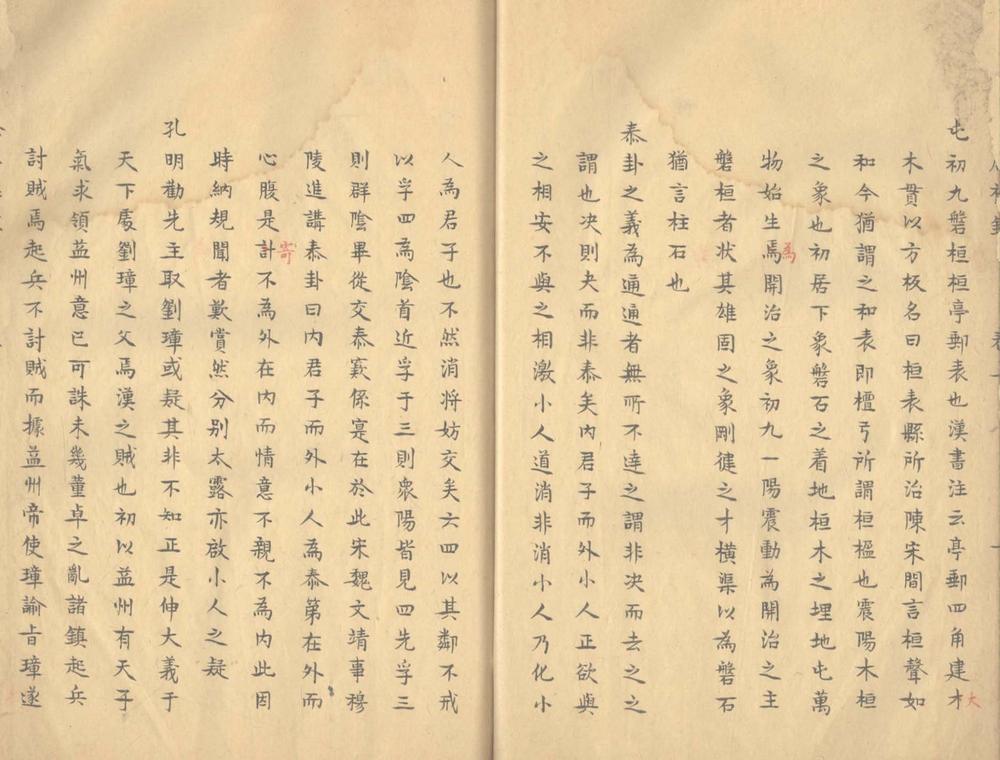 屯初九磐桓桓亭郵表也漢書注云亭郵四角建才
大
木貫以方板名曰桓表縣所治陳宋間言桓聲如
和今猶謂之和表即檀弓所謂桓楹也震陽木桓
之象也初居下象磐石之着地桓木之埋地屯萬
物始生焉開治之象初九一陽震動為開治之主
為
磐桓者狀其雄固之象剛健之才橫渠以為磐石
猶言柱石也
泰卦之義為通通者無所不達之謂非决而去之之
謂也决則夬而非泰矣內君子而外小人正欲與
之相安不與之相激小人道消非消小人乃化小
人為君子也不然消將妨交矣六四以其鄰不戒
以孚四為陰首近孚于三則衆陽皆見四先孚三
則群陰畢從交泰竅係寔在於此宋魏文靖事穆
陵進講泰卦曰內君子而外小人為泰第在外而
心腹是計不為外在內而情意不親不為內此因
寄
時納規聞者歎賞然分别太露亦啟小人之疑
孔明勸先主取劉璋或疑其非不知正是伸大義于
天下處劉璋之父焉漢之賊也初以益州有天子
氣求領益州意已可誅未幾董卓之亂諸鎮起兵
討賊焉起兵不討賊而據益州帝使璋諭旨璋遂